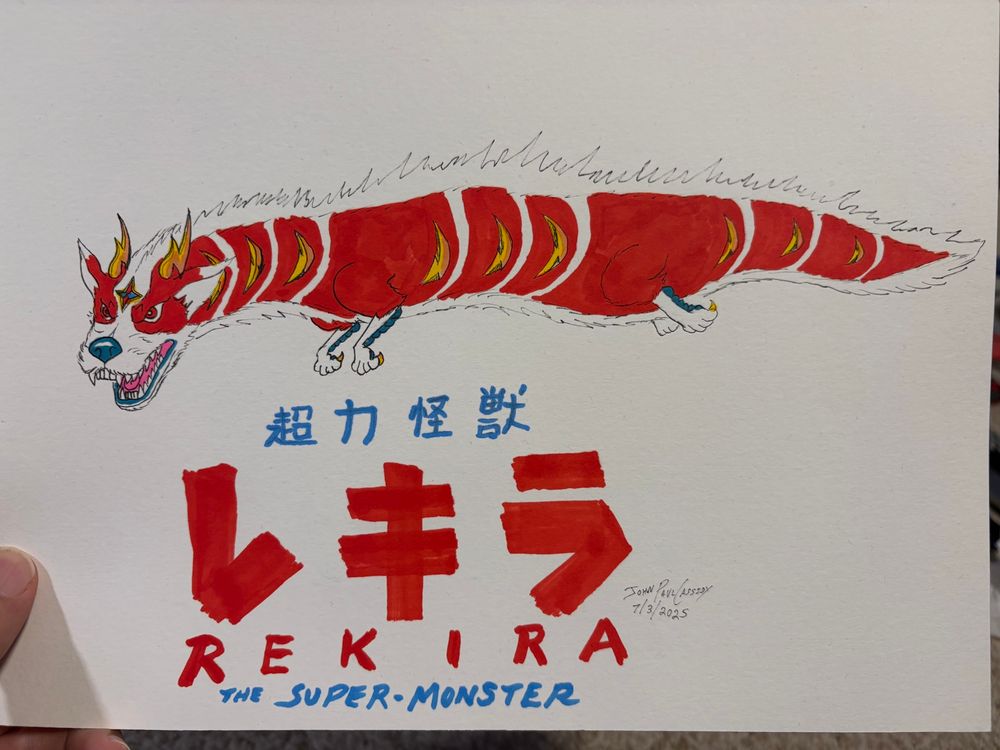 超力怪獣
レキラ
JOHN PAUL CASSIDY
7/3/2025
REKIRA
THE SUPER-MONSTER